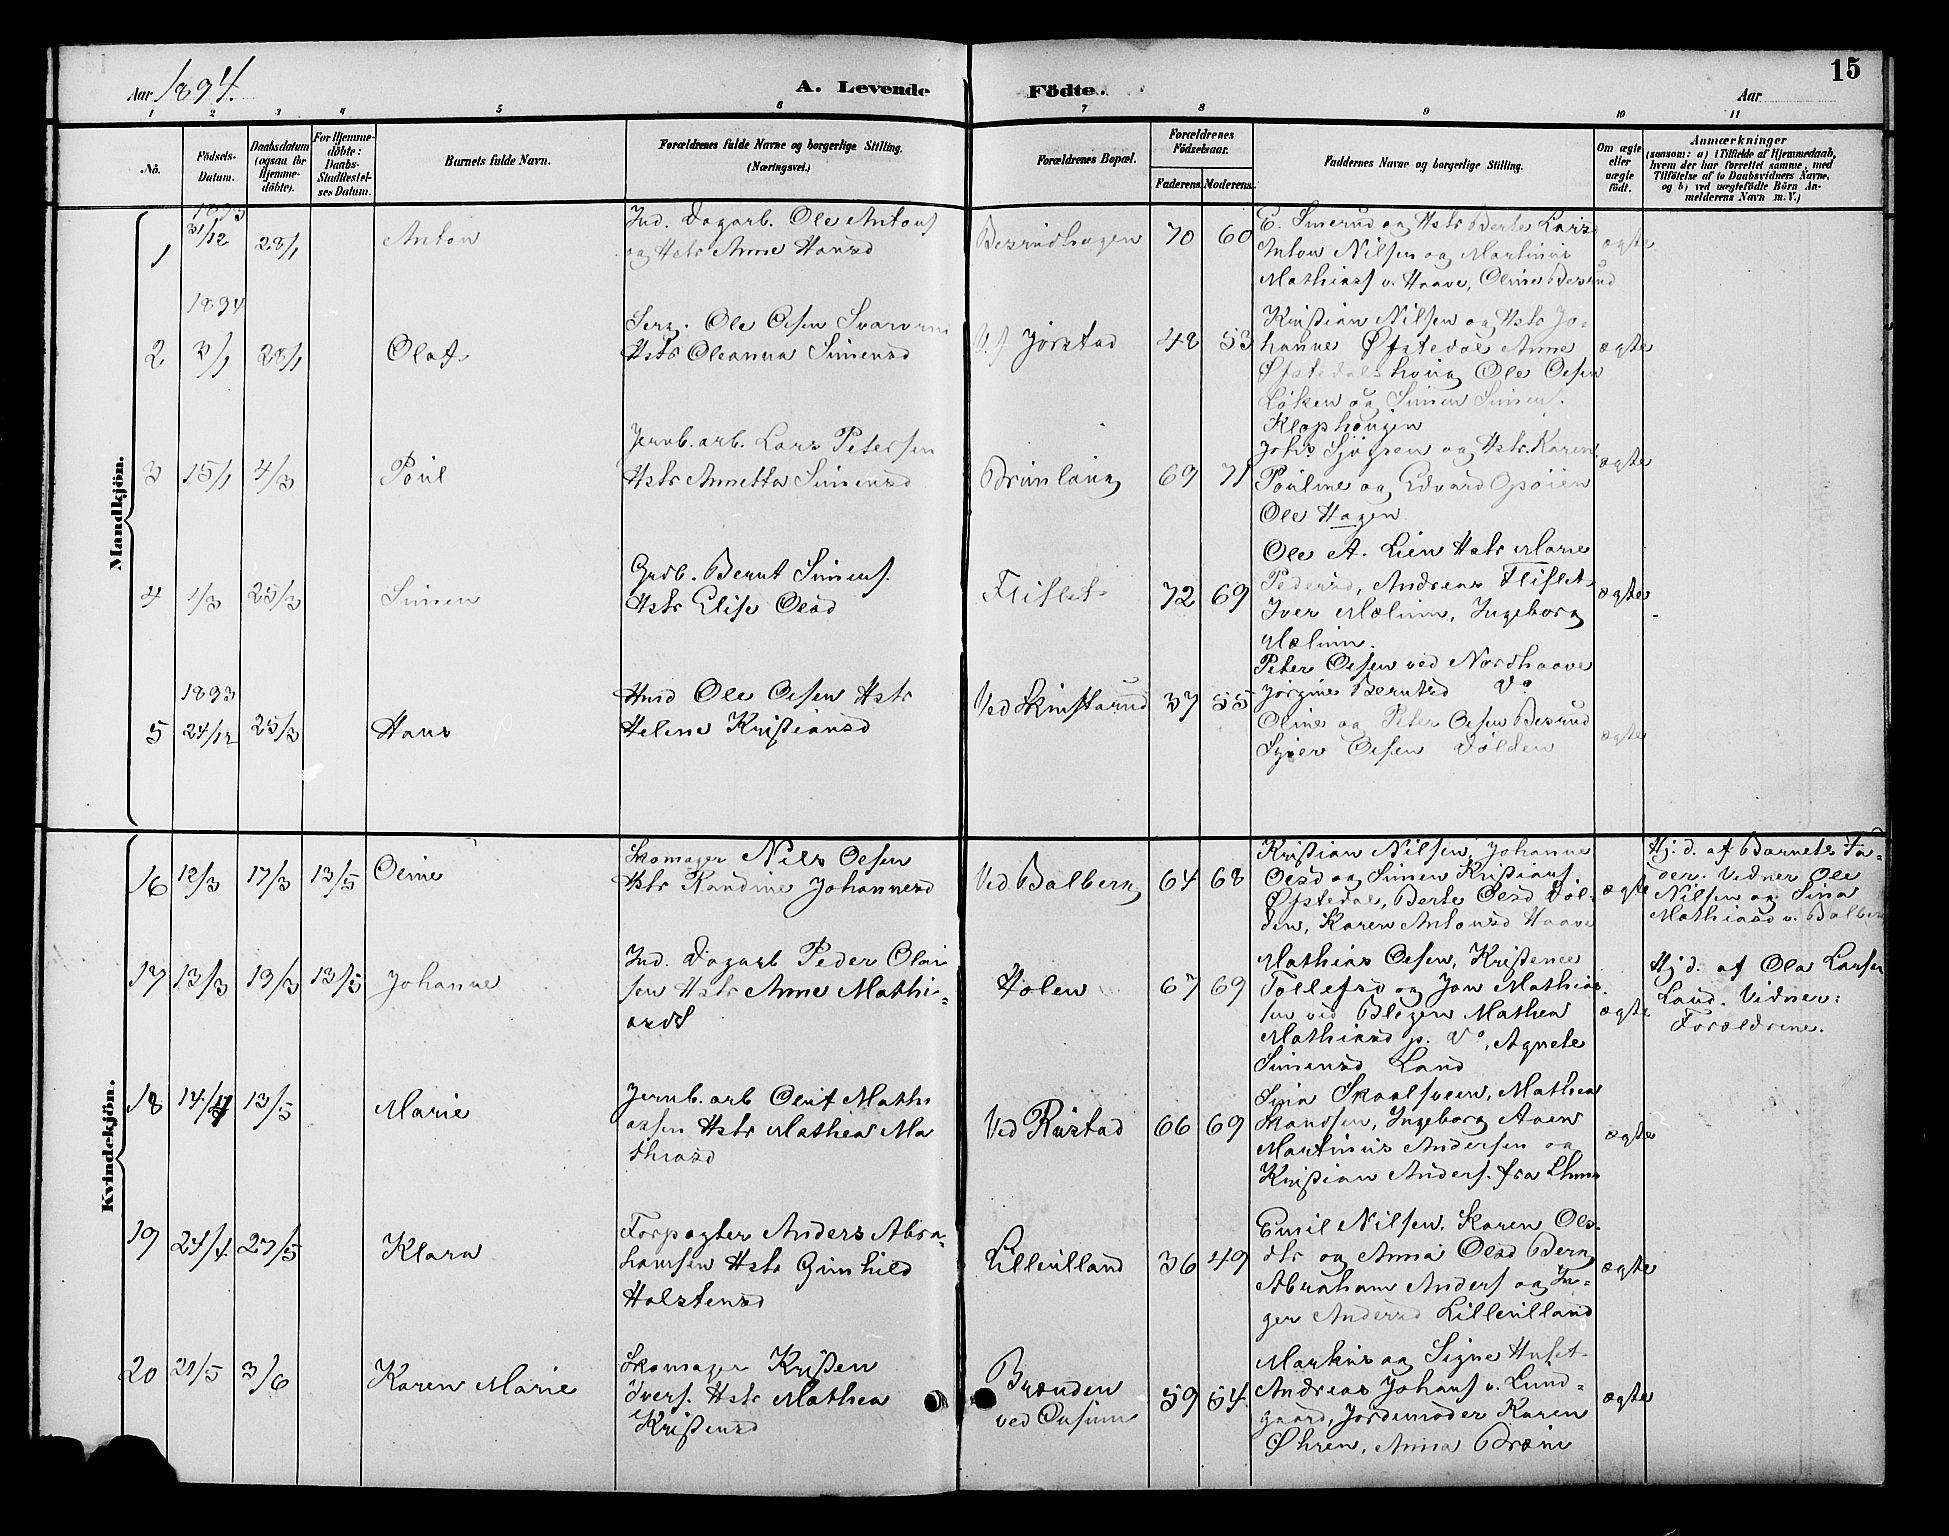 15
Aar 1894.
A. Levende Födte.
Aar
1 2 3 4 5 6 7 8 9 10 11
No.
Födsels-Datum.
Daabsdatum (ogsaa for Hjemmedöbte).
For Hjemmedöbte: Daabs-Stadfæstelses Datum.
Barnets fulde Navn.
Forældrenes fulde Navne og borgerlige Stilling.
(Næringsvei.)
Forældrenes Bopæl.
Forældrenes Födselsaar.
Faderens. Moderens.
Faddernes Navne og borgerlige Stilling.
Om ægte eller uægte födt.
Anmærkninger
(saasom: a) i Tilfælde af Hjemmedaab,
hvem der har forrettet samme, med
Tilföielse af to Daabsvidners Navne,
og b) ved uægtefödte Börn An-
melderens Navn m. V.)
Mandkjön.
1893
1 31/12 28/1 Anton
Ind. Dagarb. Ole Antons
og Hstr Anne Hansd
Besrudhagen 70 60
E. Smerud og Hstr Berte Larsd
Anton Nilsen og Martinus
Mathiass v. Haave, Oline Besrud
ægte
1894
2 3/1 28/1 Olaf
Serg. Ole Olsen
Hstr Oleanna Simensd
Jørstad 48 53
Kristian Nilsen og Hstr Jo-
hanne Øfstedal Anne
Øfstedalshoug Ole Olsen
Løken og Simen Simens.
Klophougen
ægte
3 15/1 4/3 Poul
Jernb. arb. Lars Petersen
Hstr Annetta Simensd
Brunlaug 69 71
Johs. og Hstr. Karen
Pouline og Edvard Opsøien
Ole Hagen
ægte
4 1/3 25/3 Simen
Grdb. Bernt Simens.
Hstr Elise Olsd
Fliflet 72 69
Ole A. Lien Hstr Marie
Pedersd, Andreas Fliflet
Iver Mælum, Ingeborg
Mælum.
ægte
1893
5 24/12 25/3 Hans
Husd Ole Olsen Hstr
Helene Kristiansd
Ved Skinstarud 37 55
Peter Olsen ved Nordhaave
Jørgine Berntsd Do
Oline og Peter Olsen Besrud
Olsen Dølden
ægte
Kvindekjön.
16 12/3 17/3 13/5 Oline
Skomager Nils Olsen
Hstr Randine Johannesd
Ved Balberg 64 68
Kristian Nilsen, Johanne
Olsd og Simen Kristians.
Øfstedal, Berte Olsd Døl-
den, Karen Antonsd Haave
ægte
Hj. d. af Barnets Fa-
der. Vidner Ole
Nilsen og Sina
Mathiasd v. Balberg
17 13/3 19/3 13/5 Johanne
Ind. Dagarb Peder Olau-
sen Hstr Anne Mathi-
asd
Holen 67 69
Mathias Olsen, Kristence
Tollefsd og Jon Mathias-
sen ved Blegen Mathea
Mathiasd p. Do, Agnete
Simensd Land
ægte
Hj. d. af Ola Larsen
Land. Vidner:
Forældrene.
18 14/4 13/5 Marie
Jernb. arb Oluf Mathi
assen Hstr Mathea Ma
thiasd
Ved Rustad 66 69
Sina Skaalsveen, Mathea
Skandsen, Ingeborg Aaen
Martinus Andersen og
Kristian Anders. fra
ægte
19 24/4 27/5 Klara
Forpagter Anders Abra-
hamsen Hstr Gunhild
Halstensd
Lilleulland 36 49
Emil Nilsen, Karen Ols-
dtr og Anna Olsd Berg
Abraham Anders og In-
ger Andersd Lilleulland
ægte
20 21/5 3/6 Karen Marie
Skomager Kristen
Ivers. Hstr Mathea
Kristensd
Brænden
ved Onsum 59 54
Markus og Signe Huset
Andreas Johans v. Lund-
gaard, Jordemoder Karen
Øhren, Anna Bræin
ægte